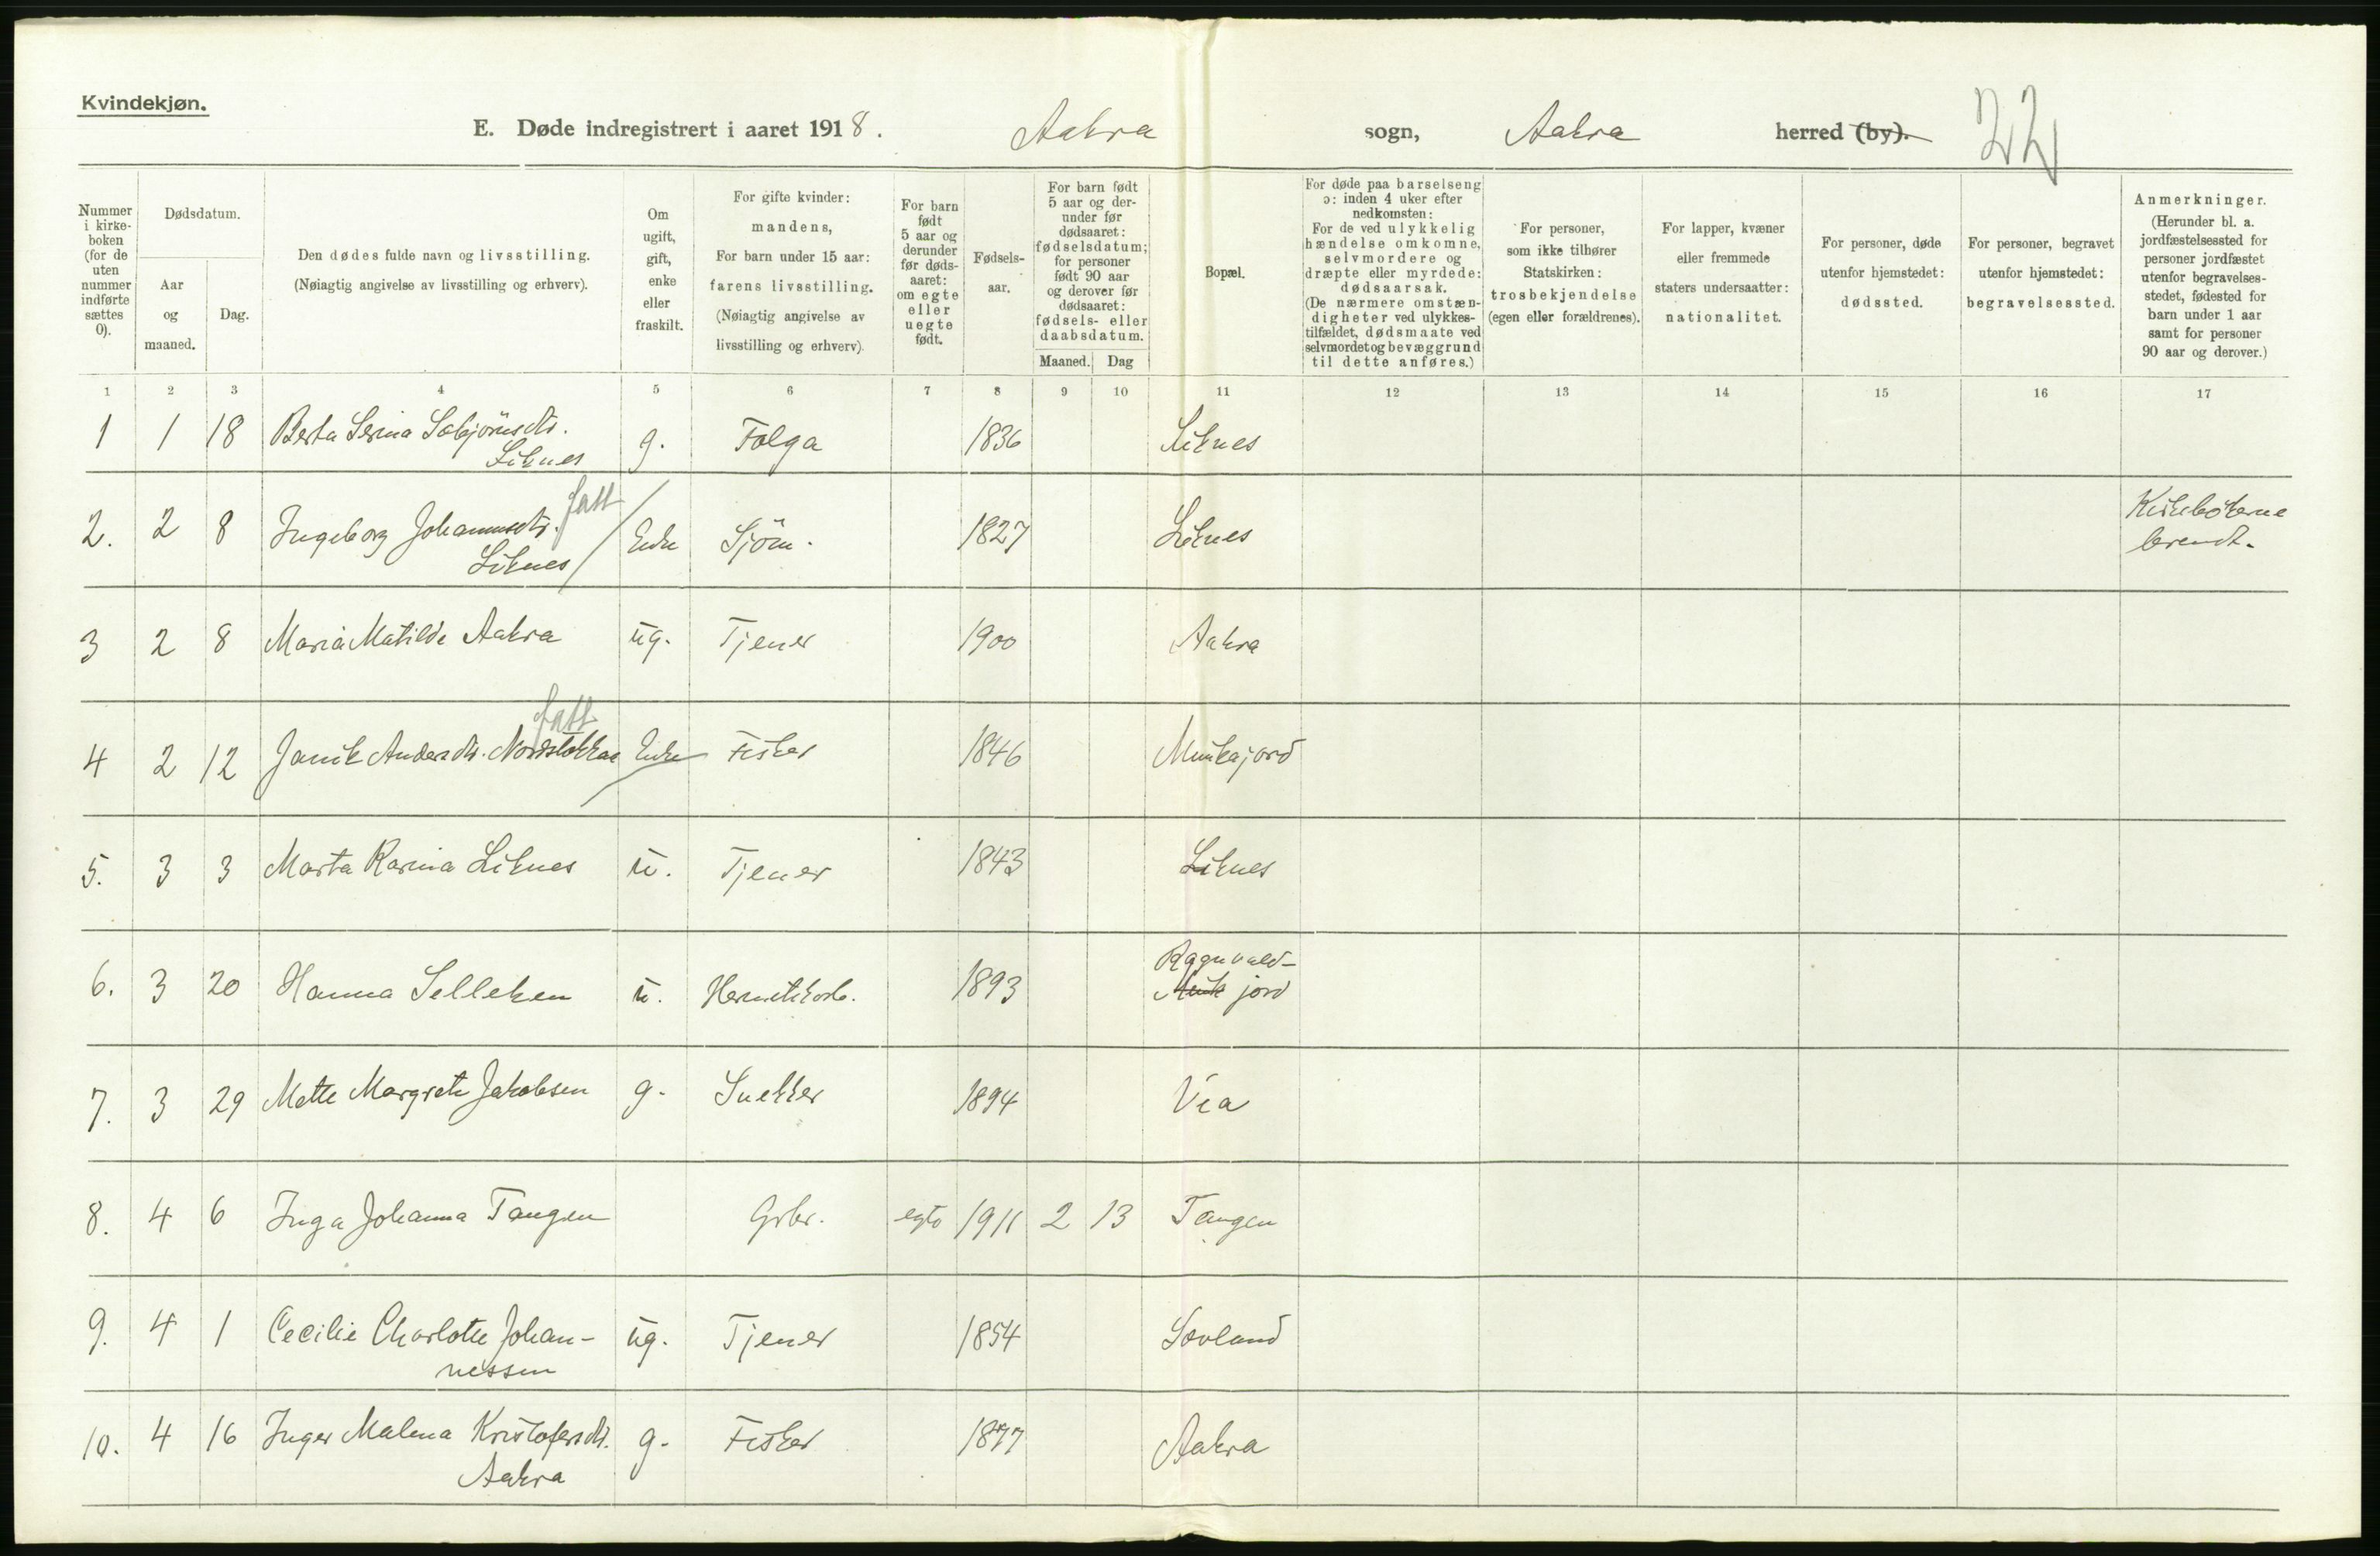 Kvindekjøn.
E. Døde indregistrert i aaret 1918. Aakra sogn, Aakra herred (by). 22
Nummer i kirkeboken (for de uten nummer indførte sættes 0).
Dødsdatum.
Aar og maaned.
Dag.
Den dødes fulde navn og livsstilling.
(Nøiagtig angivelse av livsstilling og erhverv).
Om ugift, gift, enke eller fraskilt.
For gifte kvinder: mandens, For barn under 15 aar: farens livsstilling. (Nøiagtig angivelse av livsstilling og erhverv).
For barn født 5 aar og derunder før dødsaaret: om egte eller uegte født.
Fødselsaar.
For barn født 5 aar og derunder før dødsaaret: fødselsdatum; for personer født 90 aar og derover før dødsaaret: fødsels- eller daabsdatum.
Maaned. Dag
Bopæl.
For døde paa barselseng ɔ: inden 4 uker efter nedkomsten: For de ved ulykkelig hændelse omkomne, selvmordere og dræpte eller myrdede: dødsaarsak. (De nærmere omstændigheter ved ulykkestilfældet, dødsmaate ved selvmordet og bevæggrund til dette anføres.)
For personer, som ikke tilhører Statskirken: trosbekjendelse (egen eller forældrenes).
For lapper, kvæner eller fremmede staters undersaatter: nationalitet.
For personer, døde utenfor hjemstedet: dødssted.
For personer, begravet utenfor hjemstedet: begravelsessted.
Anmerkninger. (Herunder bl. a. jordfæstelsessted for personer jordfæstet utenfor begravelsesstedet, fødested for barn under 1 aar samt for personer 90 aar og derover.)
1 2 3 4 5 6 7 8 9 10 11 12 13 14 15 16 17
1 1 18 Berta Serina Sæbjörnsdtr. g. Folga 1836 Liknes
Liknes
fatt
2. 2 8 Ingeborg Johannesdtr. Enke Sjöm. 1827 Liknes Kirkebökerne
Liknes brendt.
3 2 8 Maria Matilde Aakra ug. Tjener 1900 Aakra
fatt
4 2 12 Janik Andersdtr. Enke Fisker 1846 Munkajord
5. 3 3 Marta Karina Liknes u. Tjener 1843 Liknes
6. 3 20 Hanna Selleken u. 1893 Ragnvald-
Munk jord
7. 3 29 Mette Margrete Jakobsen g. Snekker 1894 Vea
8. 4 6 Inga Johanna Tangen Grbr. egte 1911 2 13 Tangen
9. 4 1 Cecilie Charlotte Johan- ug. Tjener 1854 Sævland
nessen
10. 4 16 Inger Malena Kristofersdtr. g. Fisker 1877 Aakra
Aakra